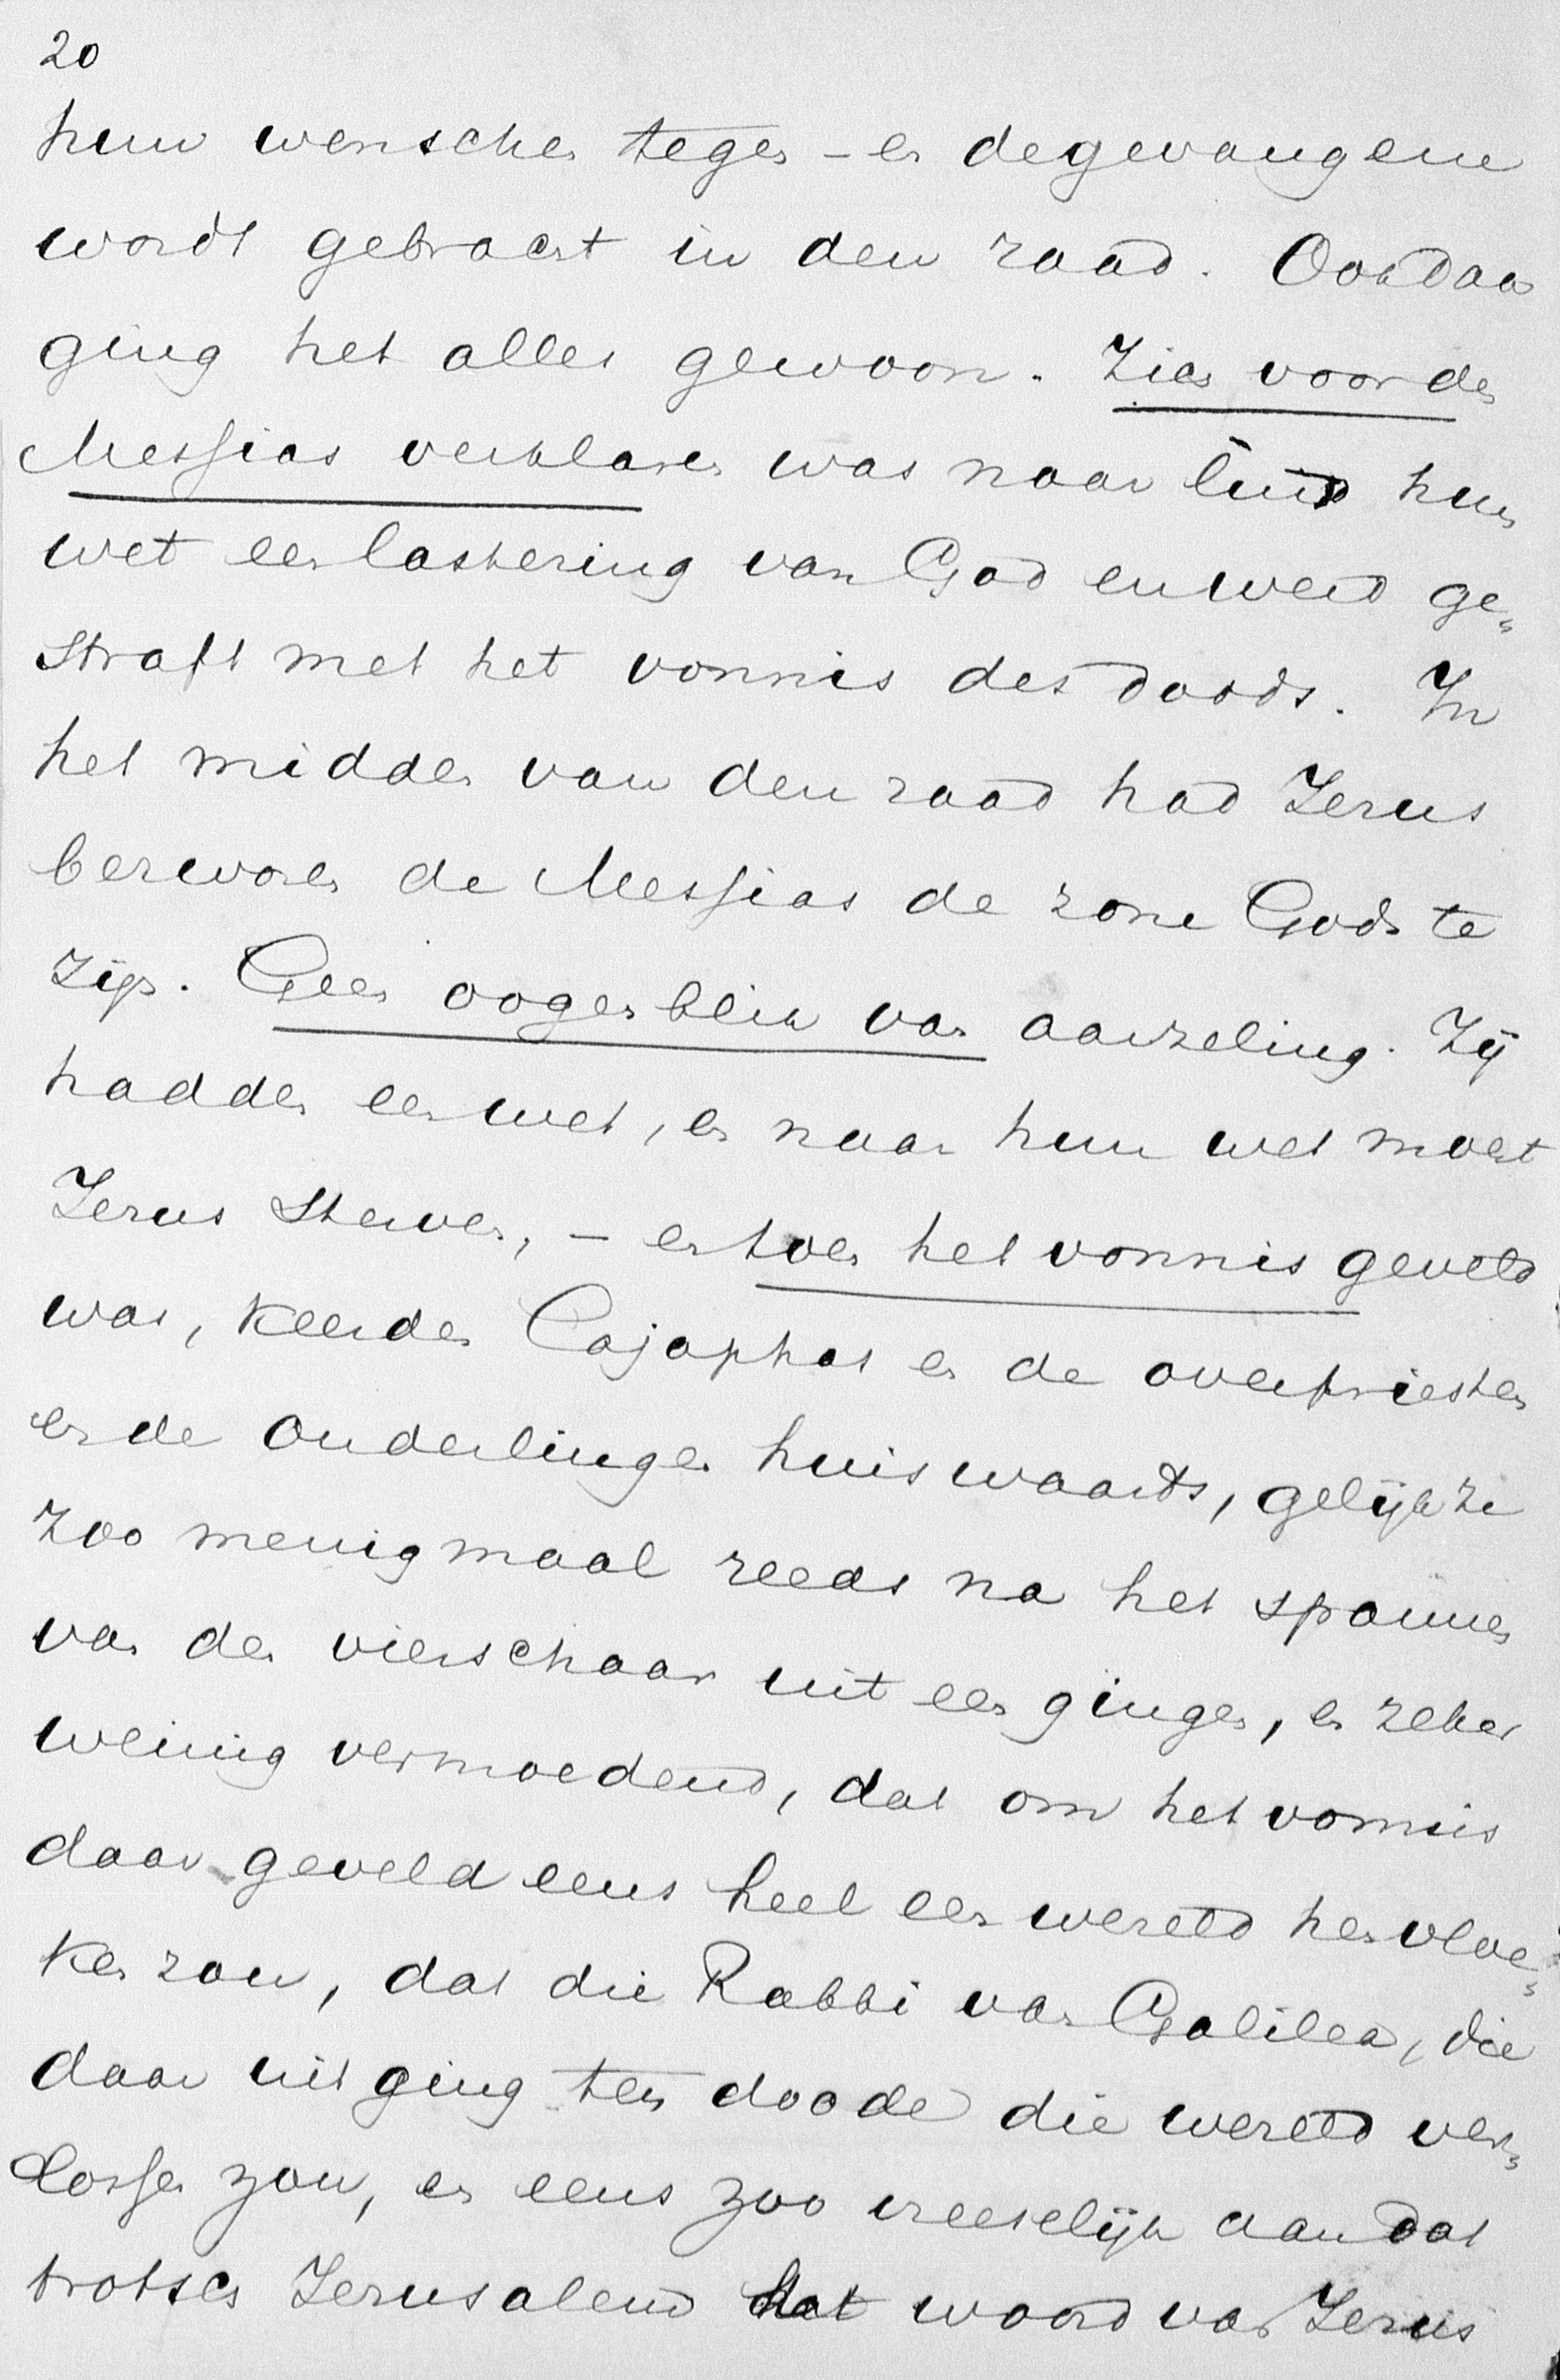 20
hun wenschen tegen – en de gevangene
wordt gebracht in den raad. Ook daar
ging het alles gewoon. Zich voor den
Messias verklaren was naar luid hun
wet een lastering van God en werd ge„
straft met het vonnis des doods. In
het midden van den raad had Jezus
bezworen de Messias de zone Gods te
zijn. Geen oogenblik van aarzeling. Zij
hadden een wet, en naar hun wet moest
Jezus sterven, – en toen het vonnis geveld
was, keerden Cajaphas en de overpriesters
en de Ouderlingen huiswaarts, gelijk ze
zoo menigmaal reeds na het spannen
van de vierschaar uit een gingen, en zeker
weinig vermoedend, dat om het vonnis
daar geveld eens heel een wereld hen vloe„
ken zou, dat die Rabbi van Galilea, die
daar uitging ten doode die wereld ver„
lossen zou, en eens zoo vreeselijk aan dat
trotsch Jeruzalem dat woord van Jezus